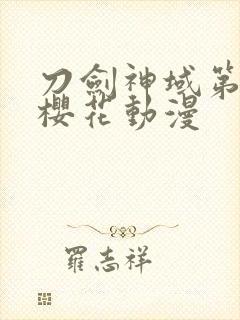 刀劍神域第
櫻花動漫
羅志祥